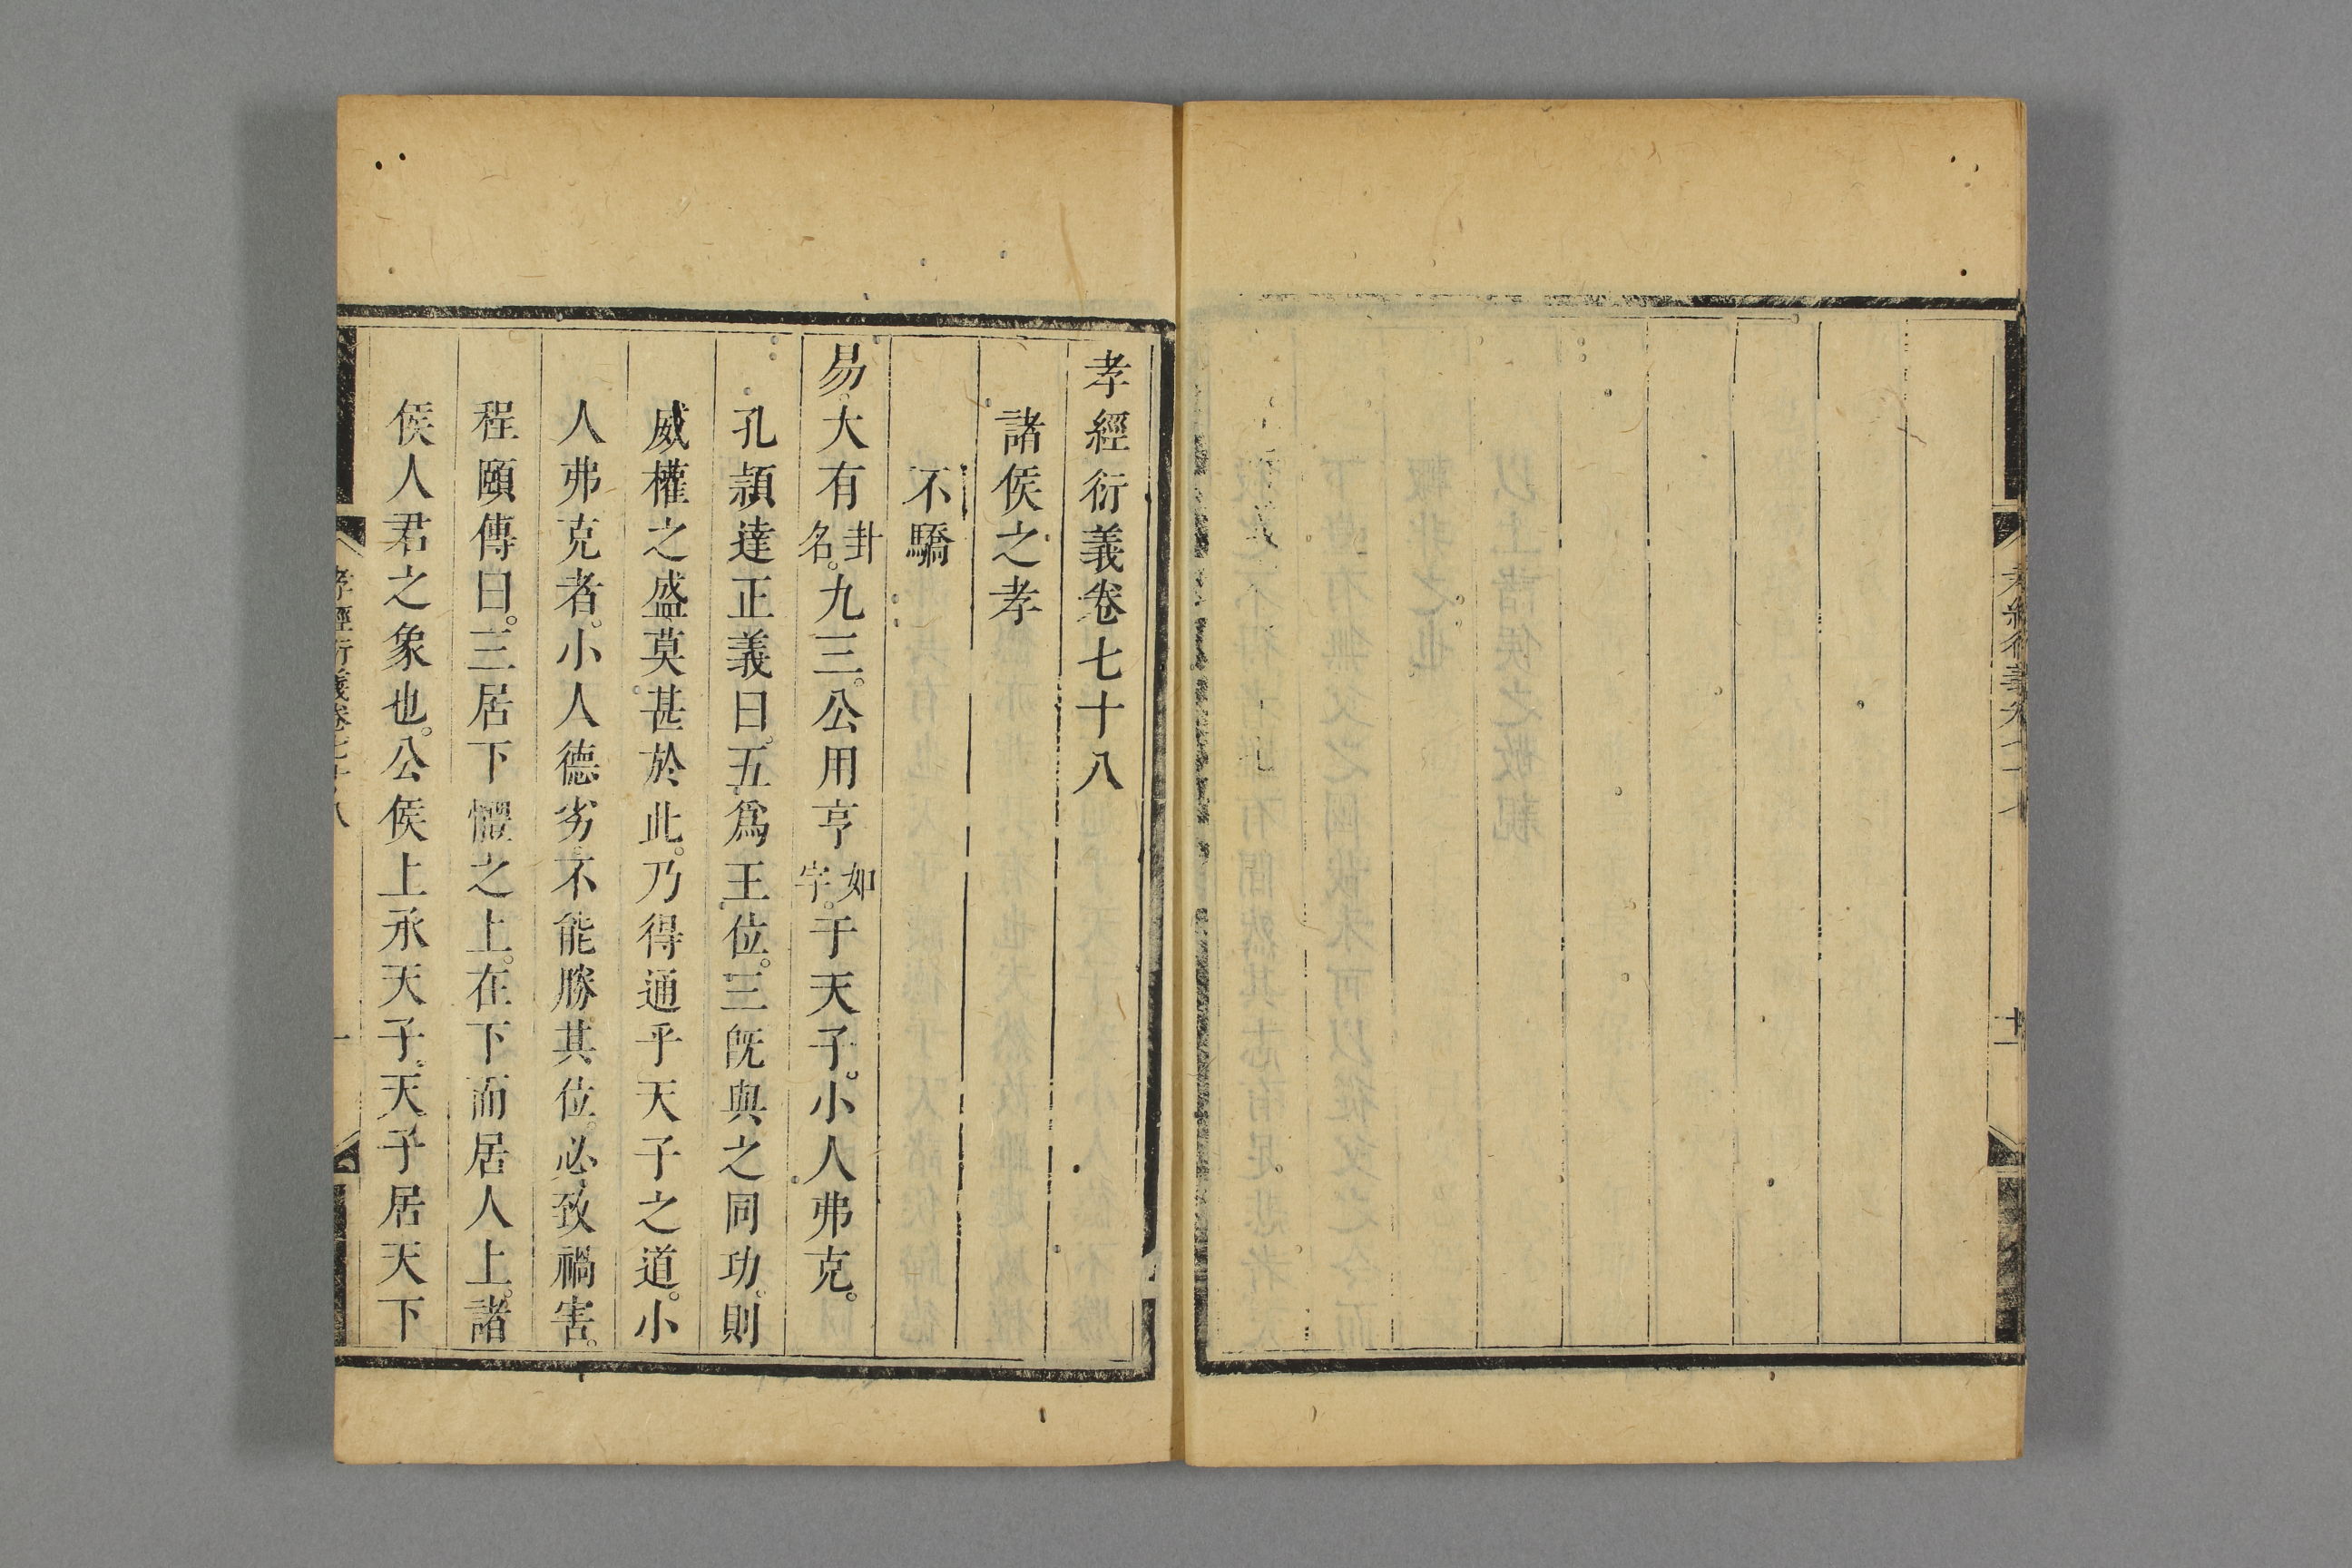 孝經衍義卷七十八
諸侯之孝
不驕
易。大有卦名。九三。公用亨如字。于天子。小人弗克。
孔頴達正義曰。五爲王位。三旣與之同功。則
威權之盛莫甚於此。乃得通乎天子之道。小
人弗克者。小人德劣不能勝其位。必致禍害。
程頤傳曰。三居下體之上。在下而居人上。諸
侯人君之象也。公侯上承天子。天子居天下
孝經衍義卷七十八
一